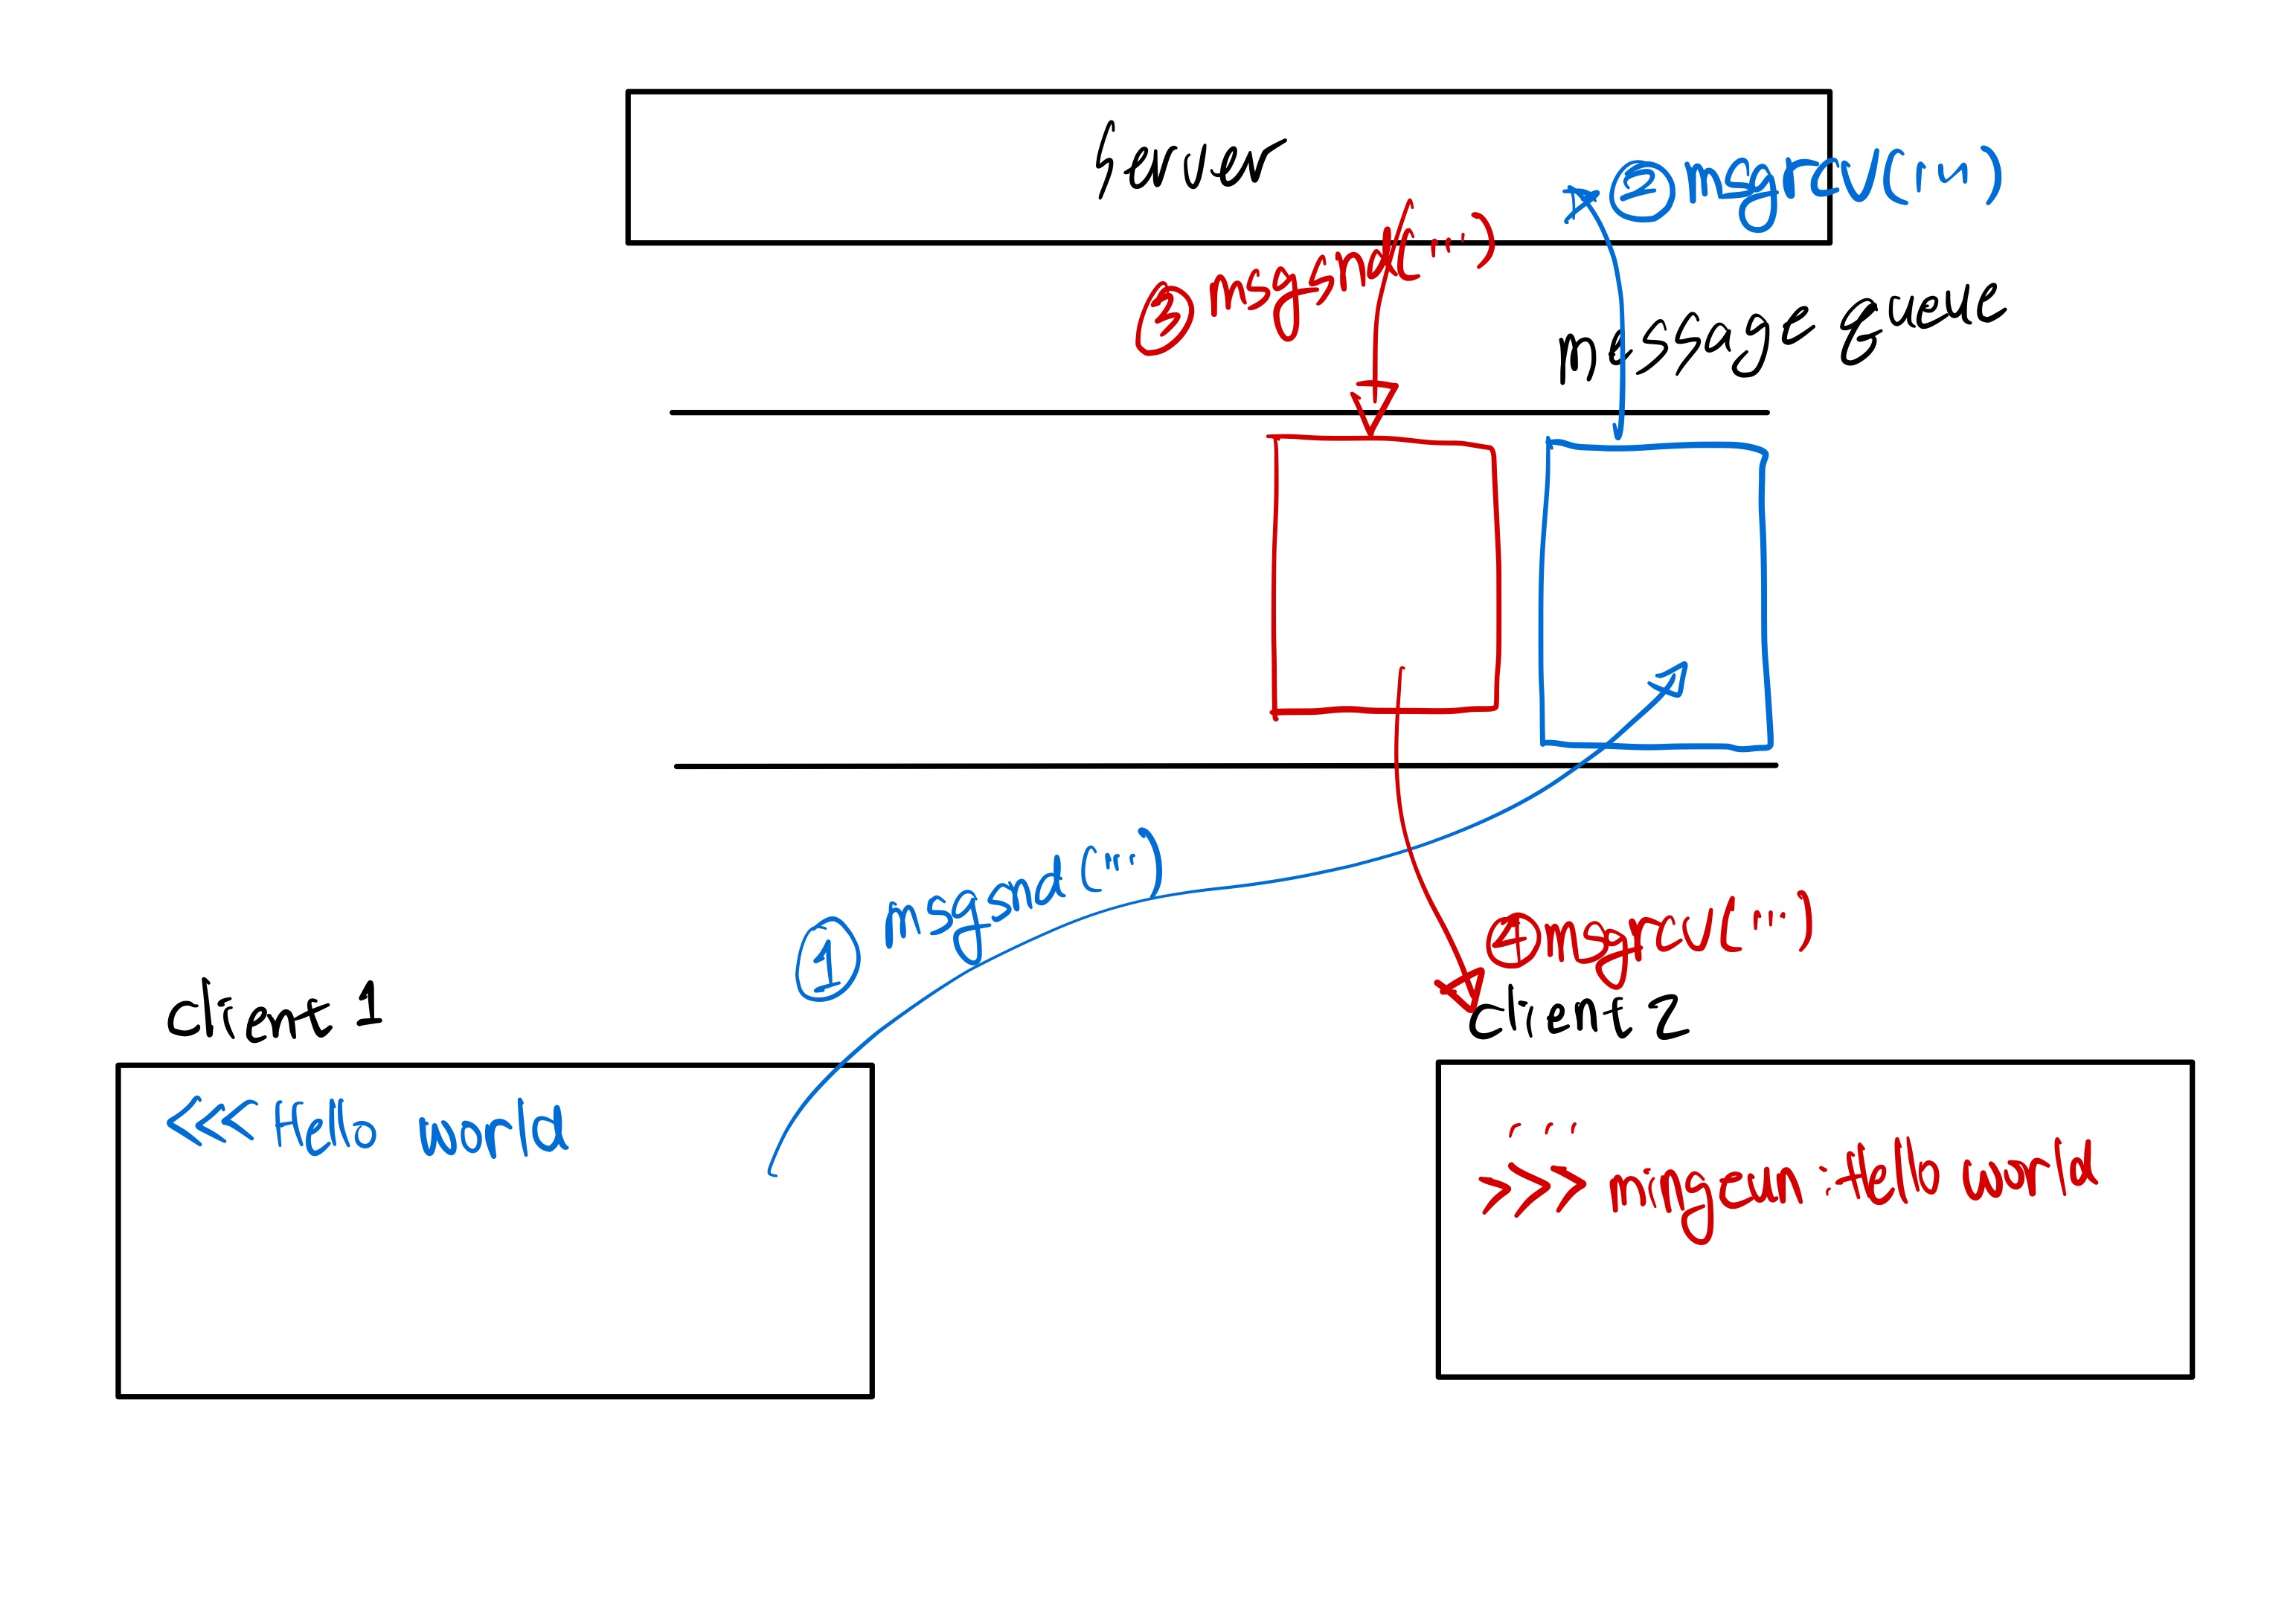 Server
② msgrcv(...)
③ msgsnd(...)
message queue
① msgsnd(...)
④ msgrcv(...)
client 1
client 2
<<< Hello world
...
>>> mingeun : Hello world